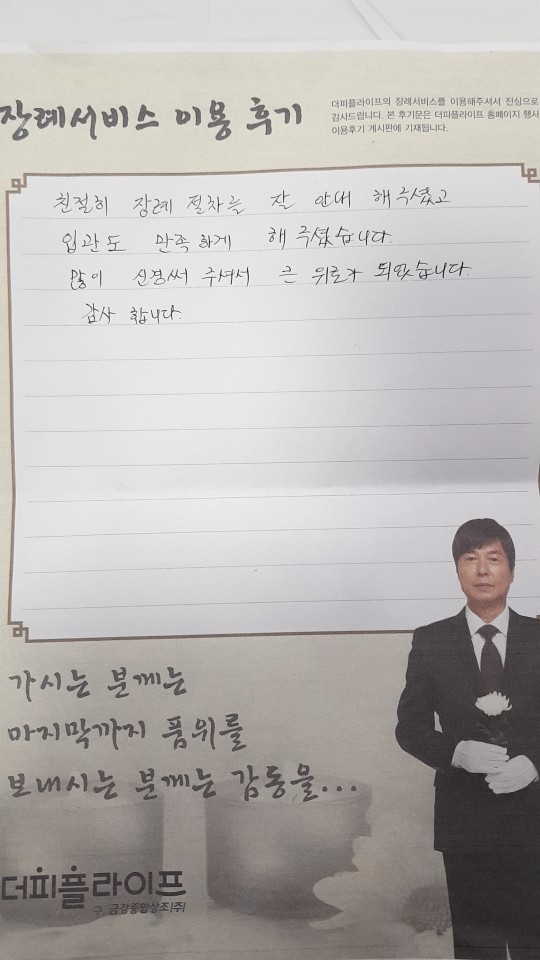 장례서비스 이용 후기
더피플라이프의 장례서비스를 이용해주셔서 진심으로
감사드립니다. 본 후기문은 더피플라이프 홈페이지 행사
이용후기 게시판에 기재됩니다.
친절히 장례 절차를 잘 안내 해주셨고
입관도 만족하게 해주셨습니다.
많이 신경써 주셔서 큰 위로가 되었습니다.
감사 합니다.
가시는 분께는
마지막까지 품위를
보내시는 분께는 감동을...
더피플라이프
구. 금강종합상조(주)